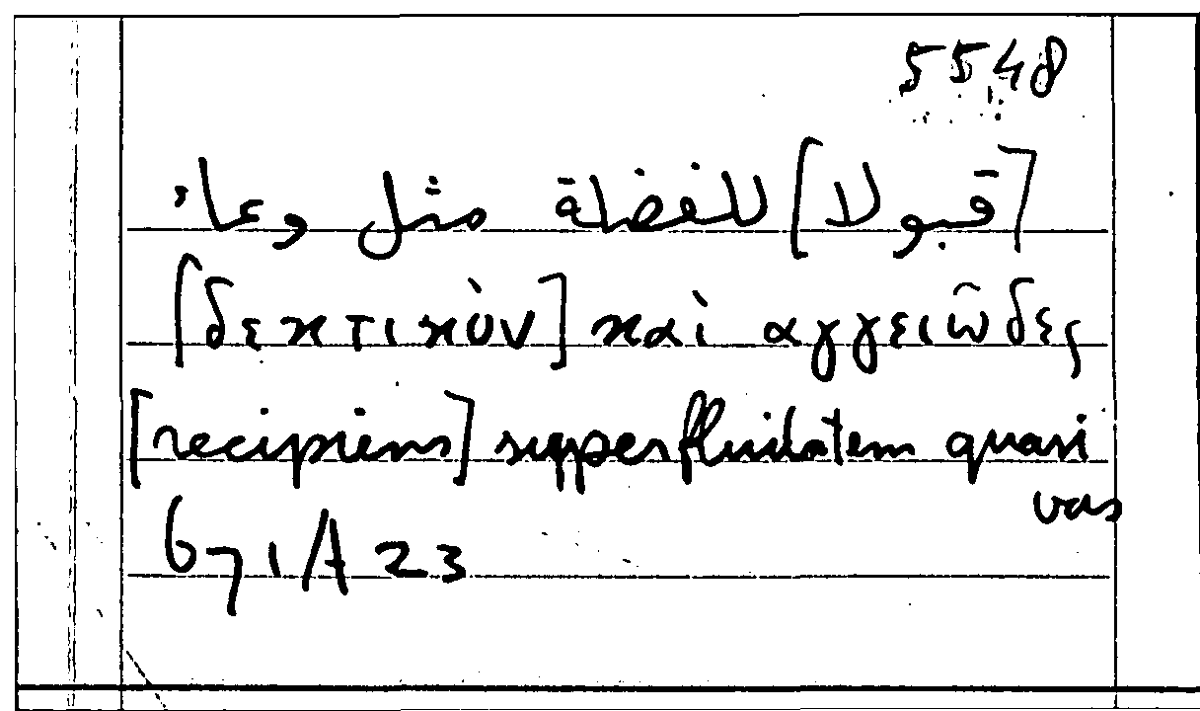 5548
[قبولا] للفضلة مثل وعاء
[δεκτικὸν] καὶ αγγειῶδες
[recipiens] superfluitatem quasi
vas
671A23